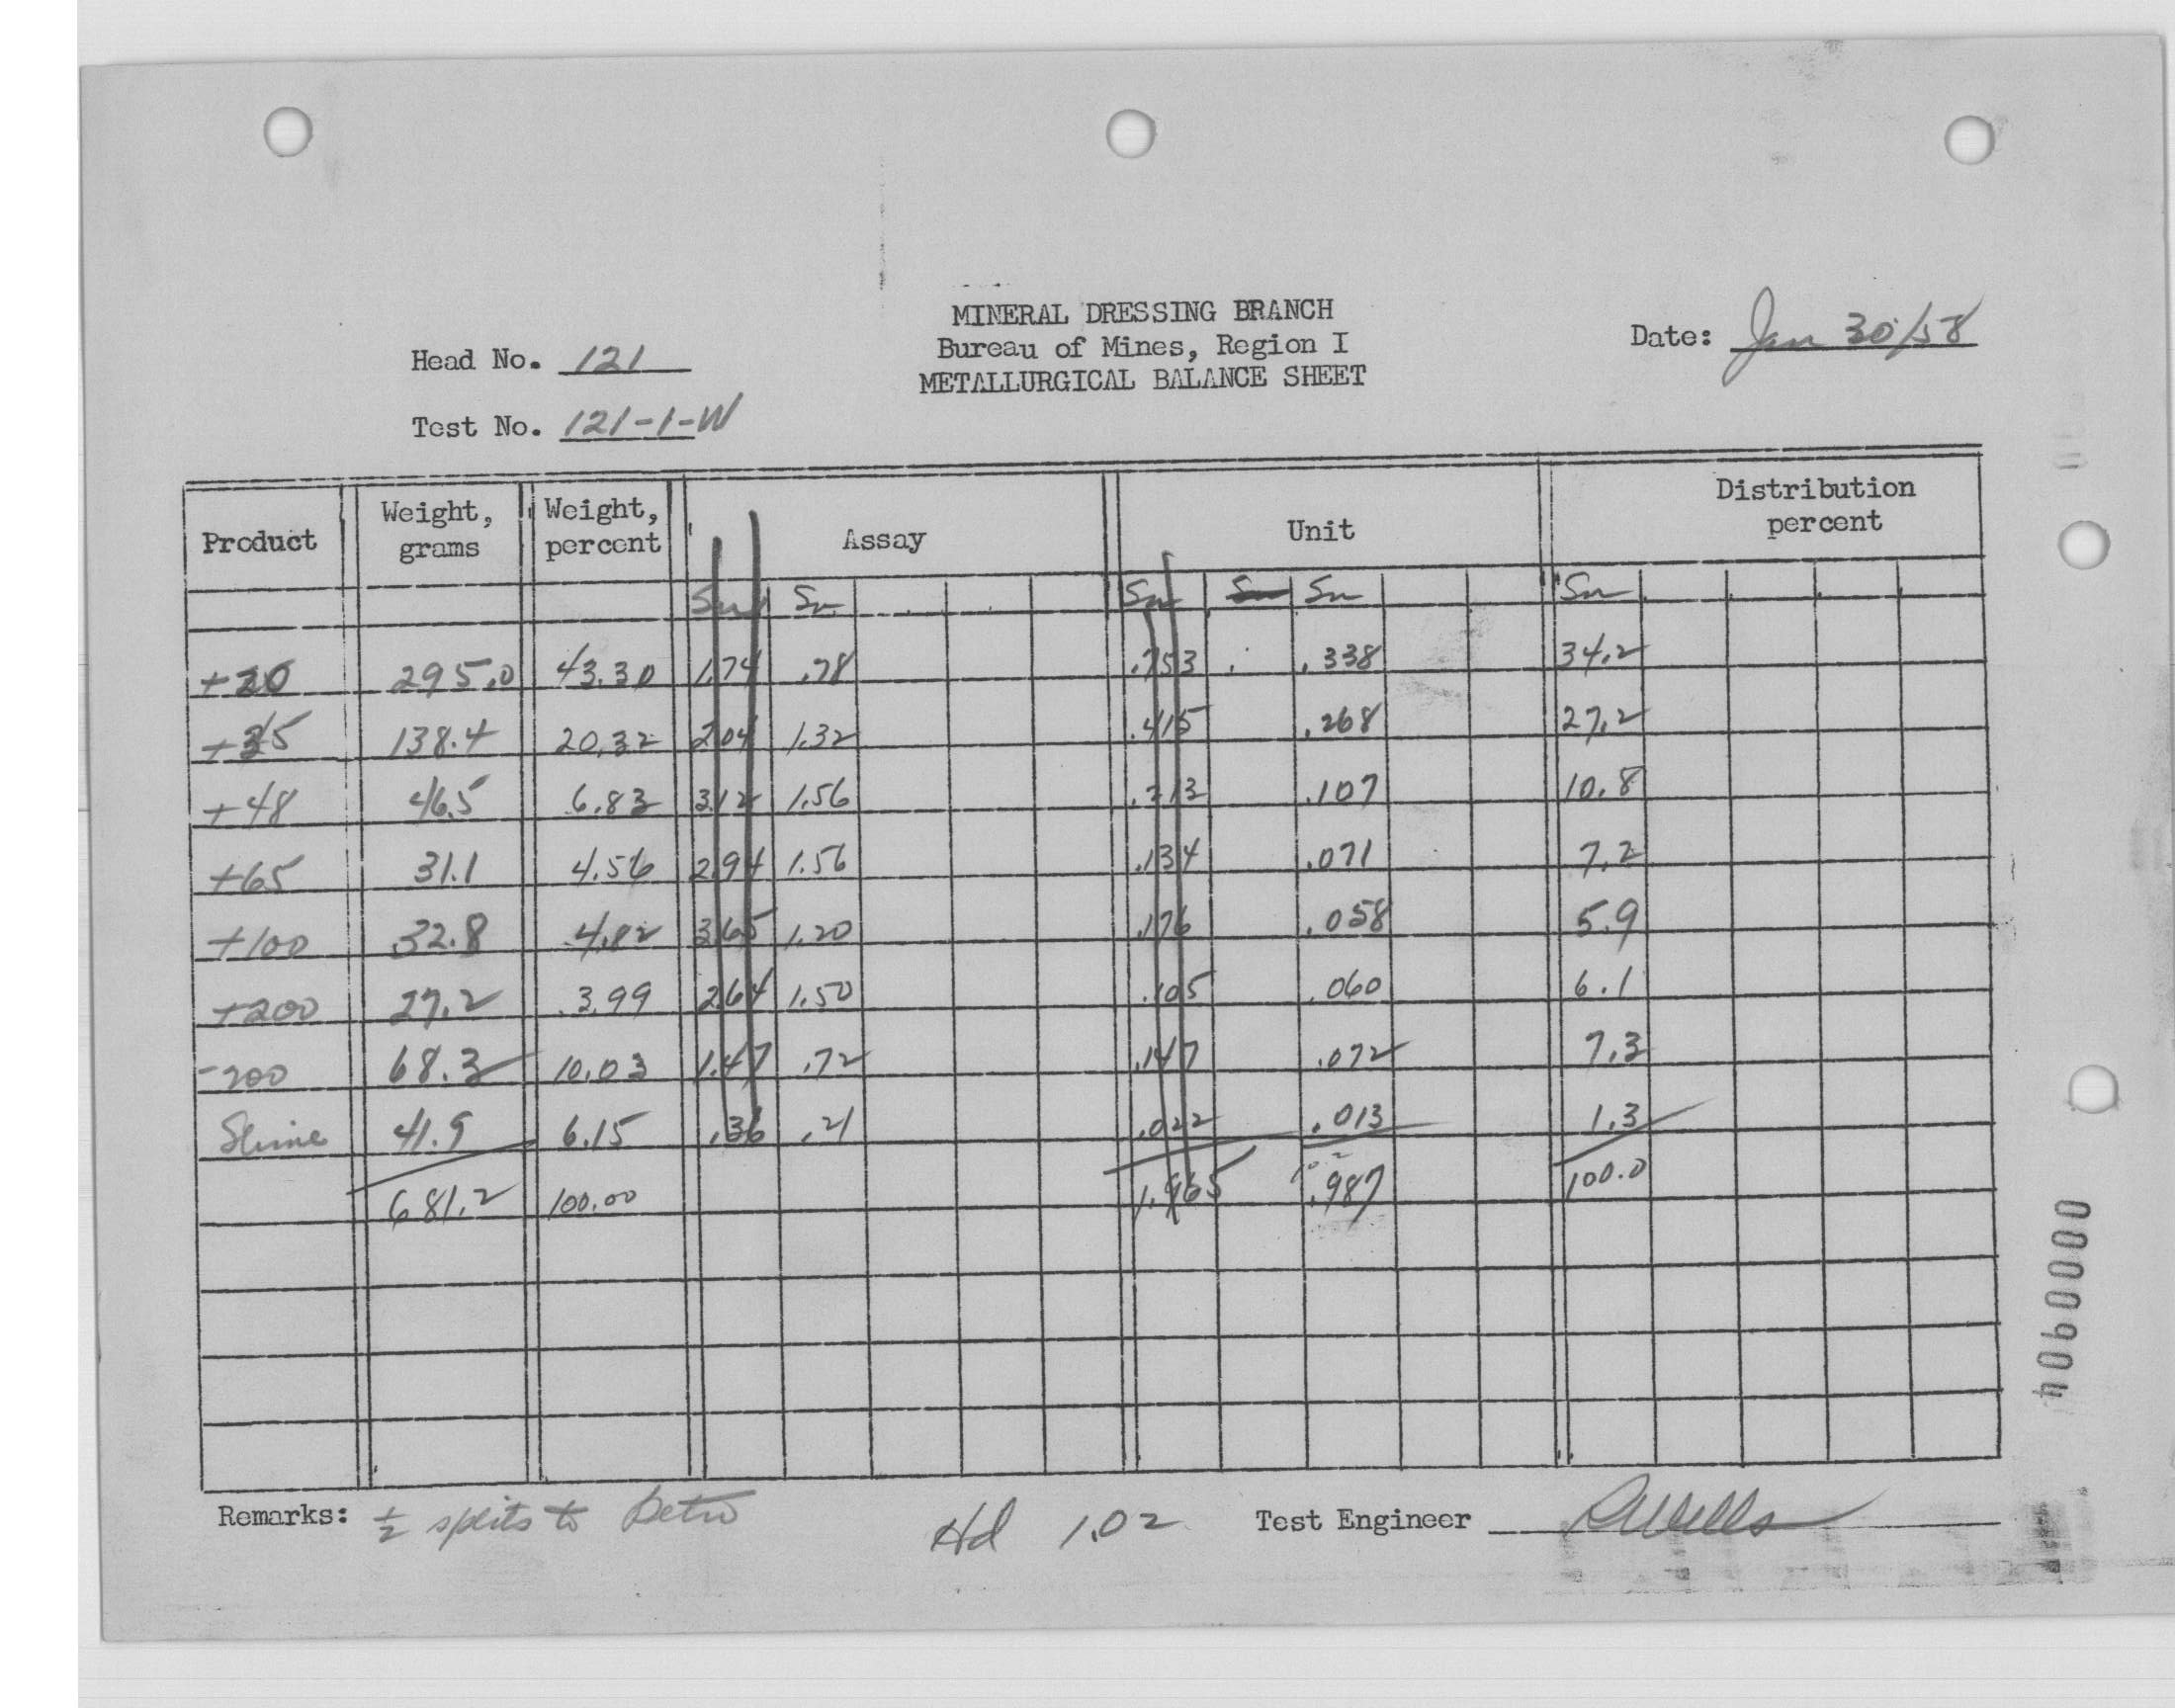 MINERAL DRESSING BRANCH
Bureau of Mines, Region I
METALLURGICAL BALANCE SHEET
Date: Jan 30/58
Head No. 121
Test No. 121-1-W
Product Weight, grams Weight, percent Assay Unit Distribution percent
Sn Sn Sn Sn Sn Sn
+20 295.0 43.30 1.74 .78 .753 .338 34.2
+35 138.4 20.32 2.04 1.32 .415 .268 27.2
+48 46.5 6.83 3.12 1.56 .213 .107 10.8
+65 31.1 4.56 2.94 1.56 .134 .071 7.2
+100 32.8 4.82 3.65 1.20 .176 .058 5.9
+200 27.2 3.99 2.64 1.50 .105 .060 6.1
-200 68.3 10.03 1.47 .72 .147 .072 7.3
Slime 41.9 6.15 .36 .21 .022 .013 1.3
681.2 100.00 1.965 .987 100.0
Remarks: ½ splits to Petro Hd 1.02 Test Engineer RWells
0000904